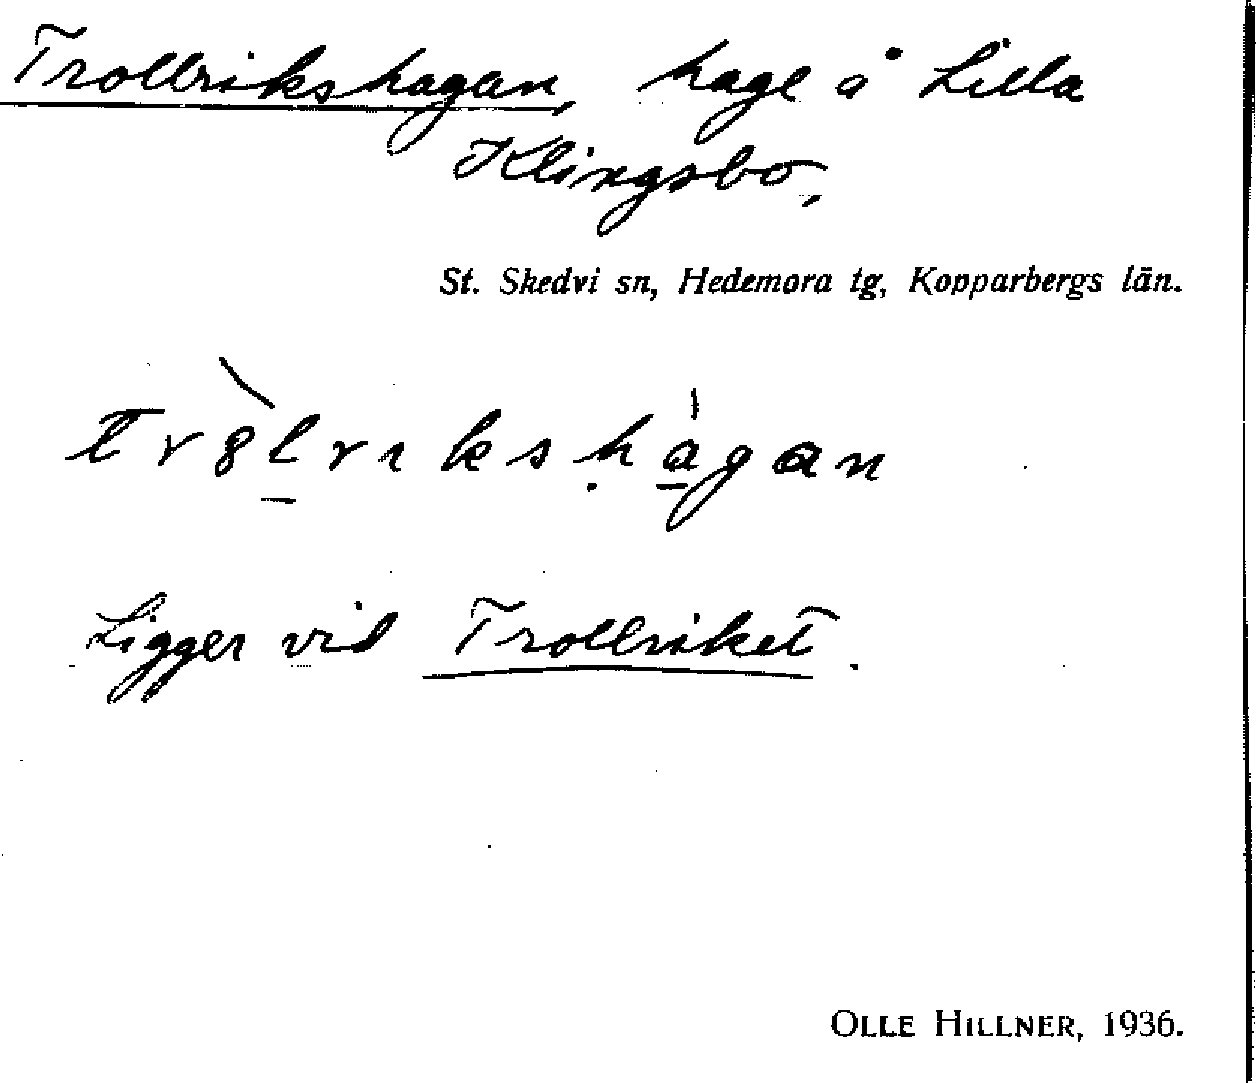 Trollrikshagan, hage å Lilla
Klingsbo,
St. Skedvi sn, Hedemora tg, Kopparbergs län.
Ligger vid Trollriket.
OLLE HILLNER, 1936.